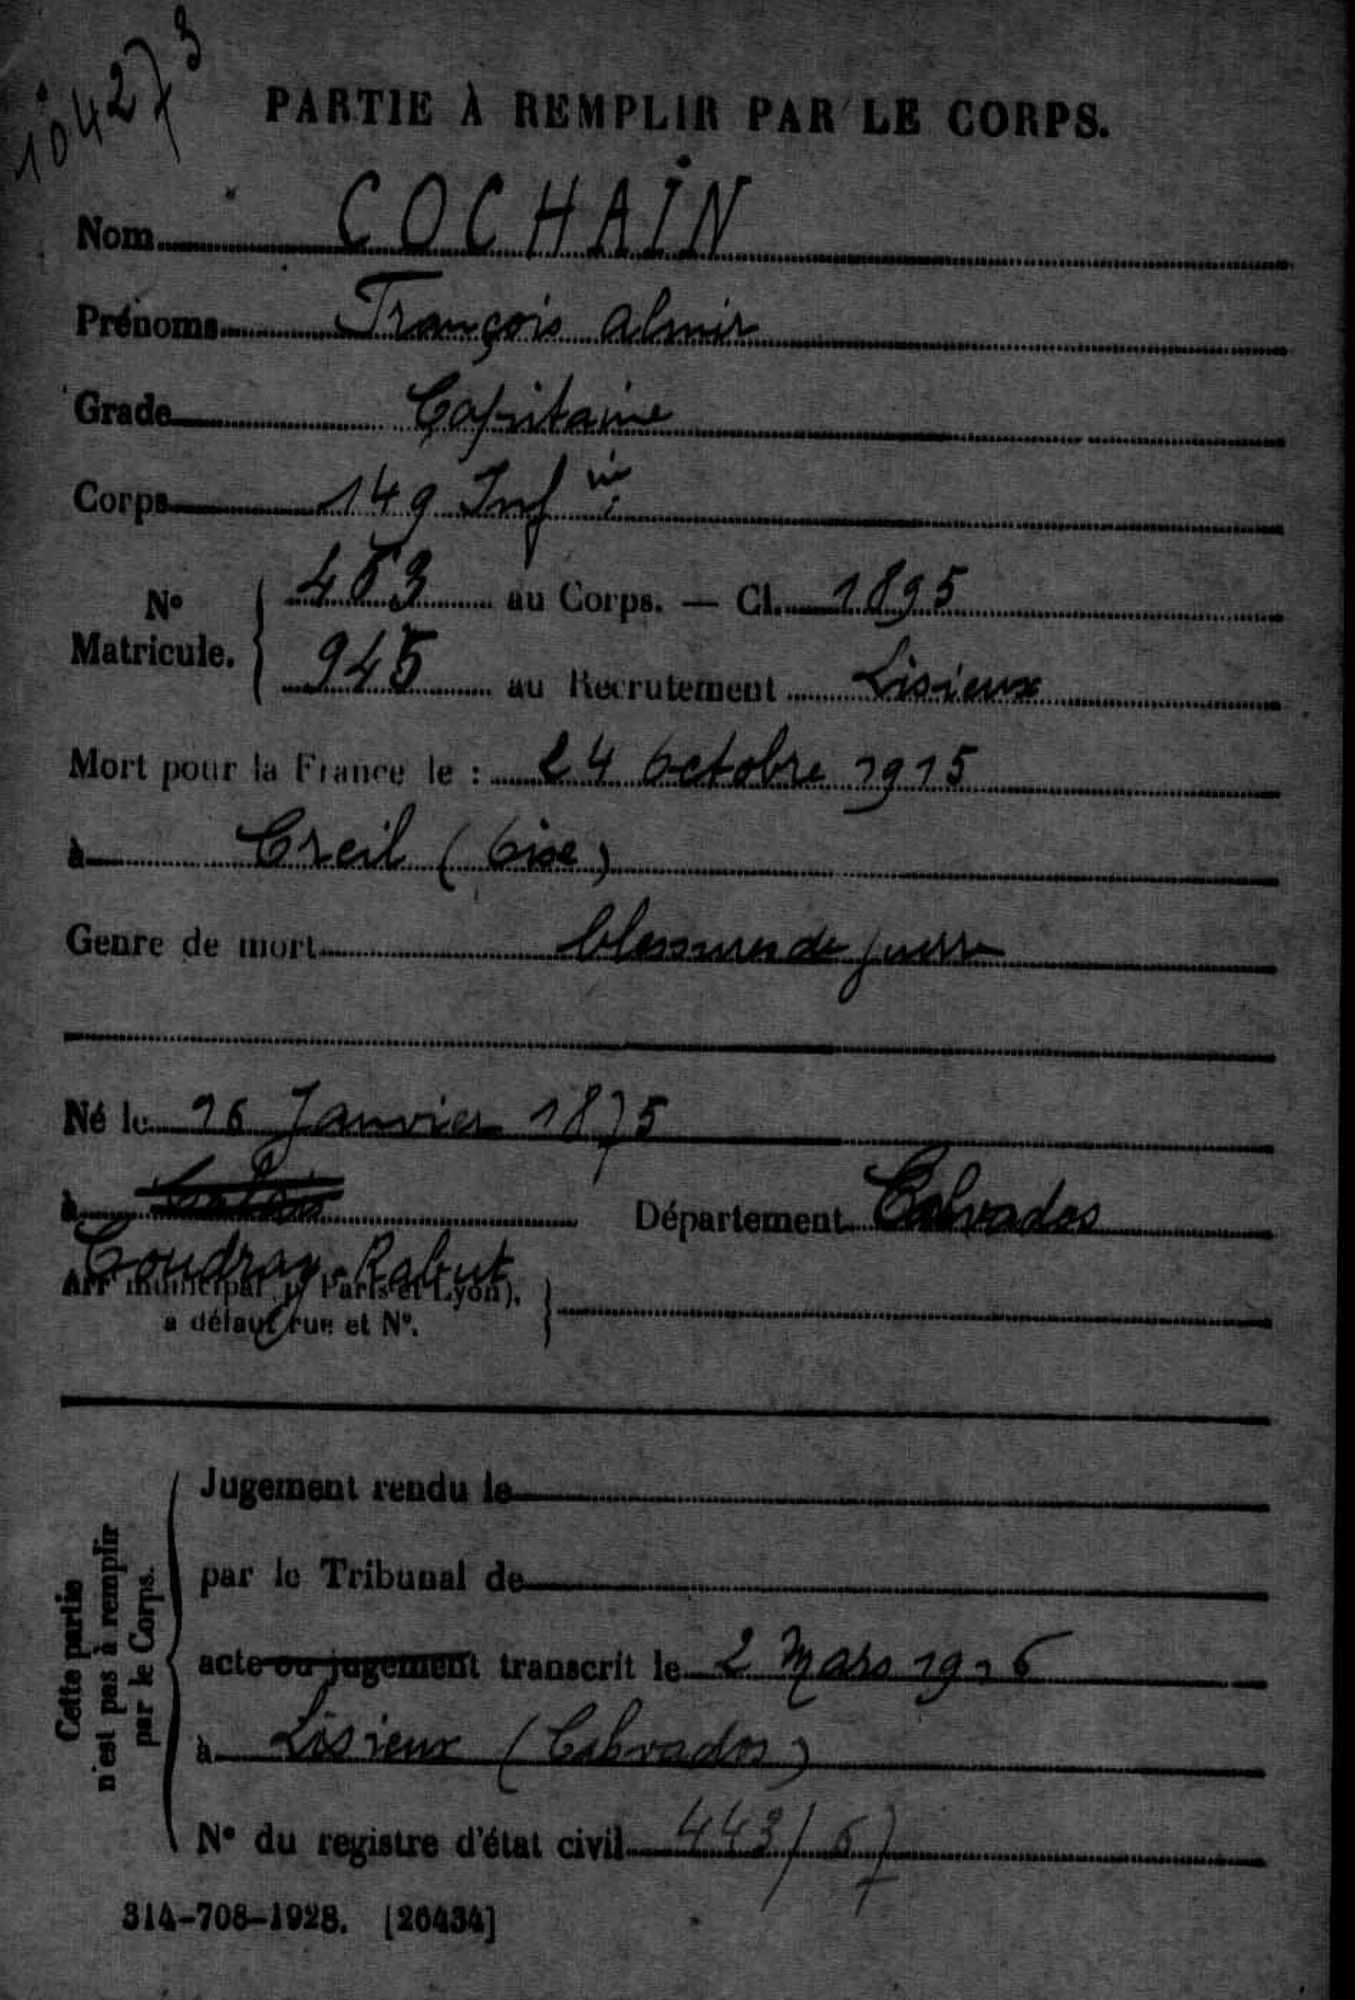 104273
PARTIE À REMPLIR PAR LE CORPS.
Nom COCHAIN
Prénoms François Almir
Grade Capitaine
Corps 149 Inf ie
N° Matricule. { 453 au Corps. — Cl. 1895
945 au Recrutement Lisieux
Mort pour la France le : 24 octobre 1915
à Creil (Oise)
Genre de mort blessures de guerre
Né le 26 Janvier 1875
à Département Calvados
Coudray-Rabut
Arr' municipal (p' Paris et Lyon),
à défaut rue et N°.
Jugement rendu le
par le Tribunal de
acte ou jugement transcrit le 2 Mars 1916
à Lisieux (Calvados)
N° du registre d'état civil 443/67
Cette partie
n'est pas à remplir
par le Corps.
314-708-1928. [26434]